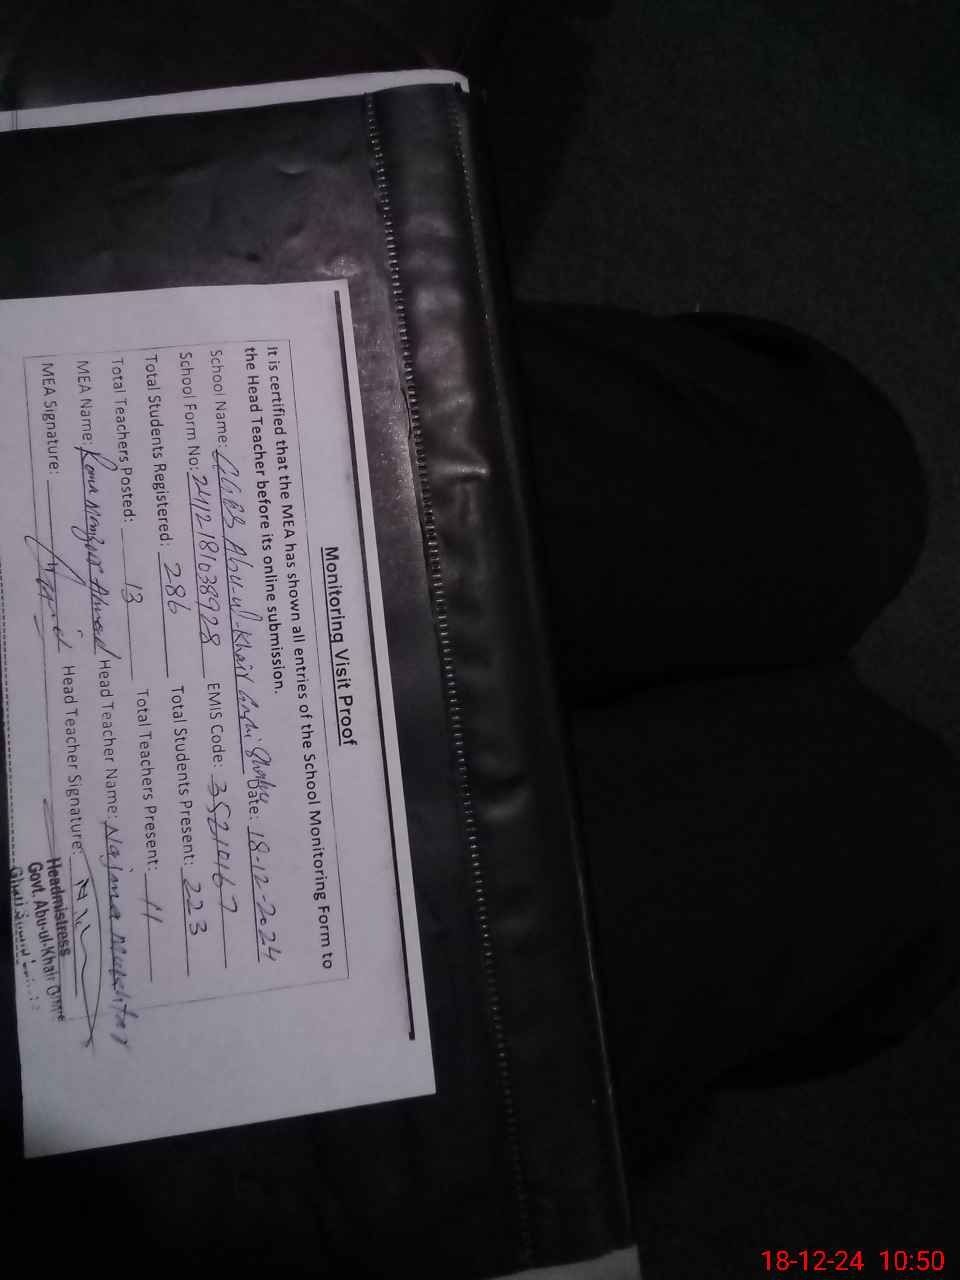 Monitoring Visit Proof
It is certified that the MEA has shown all entries of the School Monitoring Form to
the Head Teacher before its online submission.
School Name: Abu-ul-Khair Date: 18-12-2024
School Form No: 2412181038928 EMIS Code: 35210167
Total Students Registered: 286 Total Students Present: 223
Total Teachers Posted: 13 Total Teachers Present: 11
MEA Name: Rana Manzoor Ahmed Head Teacher Name: Najma Mushtaq
MEA Signature: Head Teacher Signature:
Headmistress
Govt. Abu-ul-Khair
18-12-24 10:50